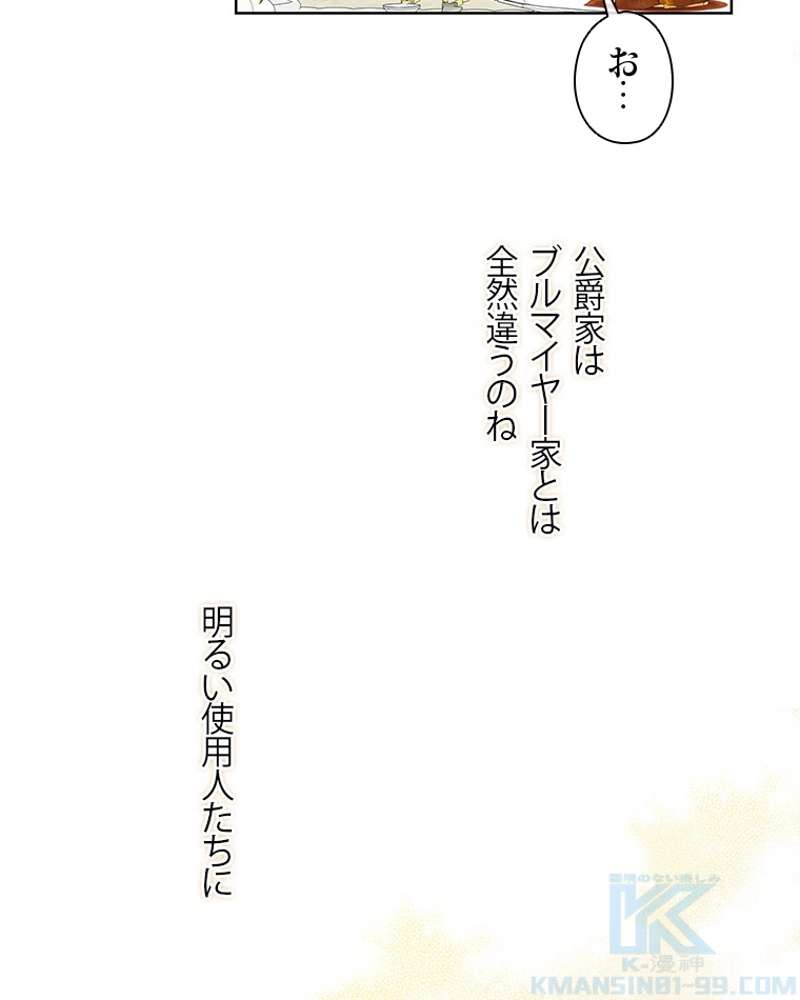 お…
公爵家は
ブルマイヤー家とは
全然違うのね
明るい使用人たちに
K-漫神
KMANSIN01-99.COM